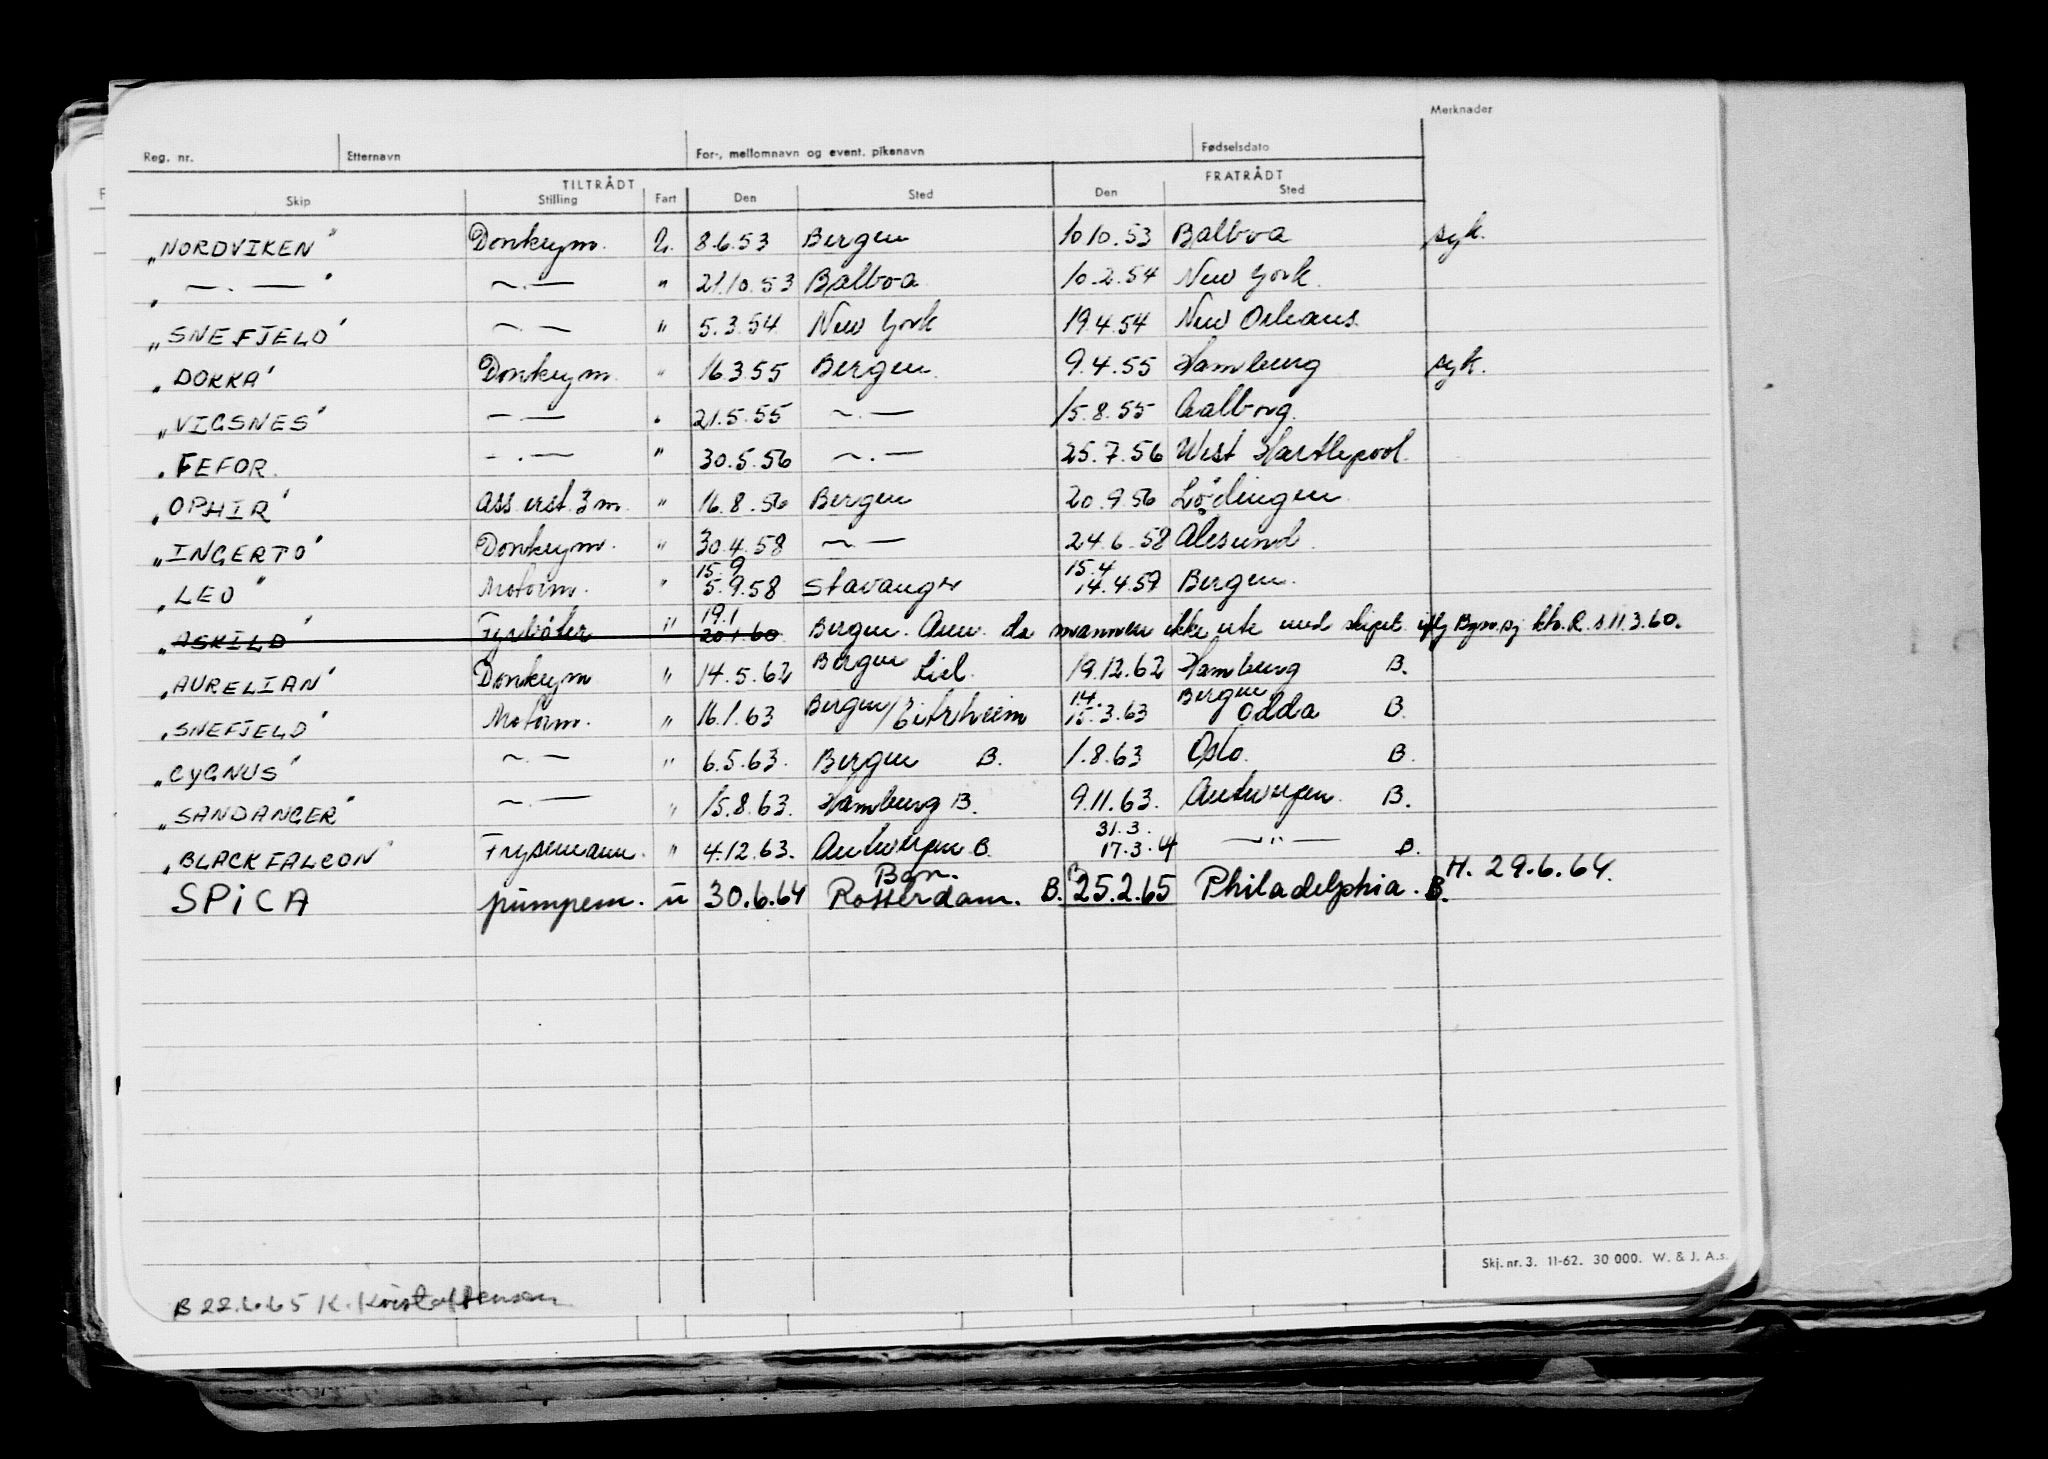 Merknader
Reg. nr. Etternavn For-, mellomnavn og event. pikenavn Fødselsdato
TILTRÅDT FRATRÅDT
Skip Stilling Fart Den Sted Den Sted
„NORDVIKEN" Donkeym. U. 8.6.53 Bergen 10 10.53 Balboa syk.
„ —.— " —.— " 21.10.53 Balboa 10.2.54 New York.
„SNEFJELD" —.— " 5.3.54 New York 19.4.54 New Orleans
„DOKKA" Donkeym. " 16.3.55 Bergen. 9.4.55 Hamburg syk.
„VIGSNES" —.— " 21.5.55 —.— 15.8.55 Aalborg.
„FEFOR. —.— " 30.5.56 —.— 25.7.56 West Hartlepool.
„OPHIR" Ass. erst. 3 m. " 16.8.56 Bergen 20.9.56 Lödingen
„INGERTO" Donkeym. " 30.4.58 —.— 24.6.58 Ålesund.
„LEO" Motorm. " 15.9 5.9.58 Stavanger 15.4 14.4.59 Bergen.
„ASKILD" Fyrbøter " 19.1 20.1.60 Bergen. Ann. da mannen ikke ute med skipet iflg Bgn. sj. ktr. R. s. 11.3.60.
„AURELIAN" Donkeym " 14.5.62 Bergen Kiel. 19.12.62 Hamburg B.
„SNEFJELD" Motorm. " 16.1.63 Bergen/Eitrheim 14. 15.3.63 Bergen Odda B.
„CYGNUS" —.— " 6.5.63. Bergen B. 1.8.63 Oslo. B.
„SANDANGER" —.— " 15.8.63. Hamburg B. 9.11.63. Antwerpen. B.
„BLACK FALCON" Frysemann. " 4.12.63. Antwerpen B. 31.3. 17.3.4 —"— B.
SPiCA pumpem. u 30.6.64 Bgn. Rotterdam. B. B 25.2.65 Philadelphia. B. H. 29.6.64.
Skj. nr. 3. 11-62. 30 000. W. & J. A.s.
B 22.6.65 K. Kristoffensen